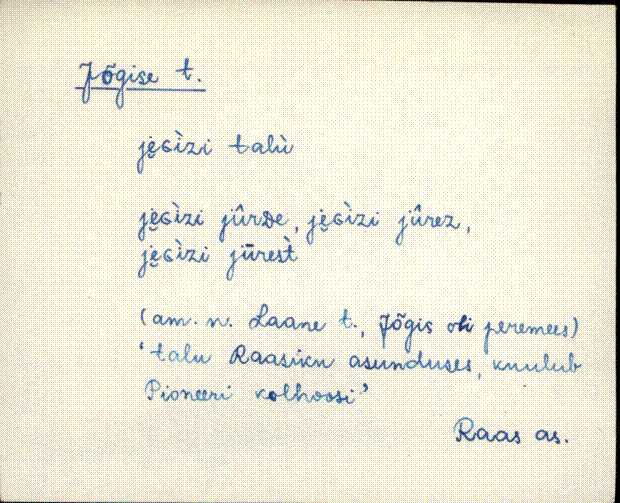 Jõgise t.
je̮ɢìzi talù
je̮ɢìzi jûrᴅe, je̮ɢìzi jûrez,
je̮ɢìzi jūrest̀
(am. n. Laane t., Jõgis oli peremees)
‘talu Raasiku asunduses, kuulub
Pioneeri kolhoosi’
Raas as.